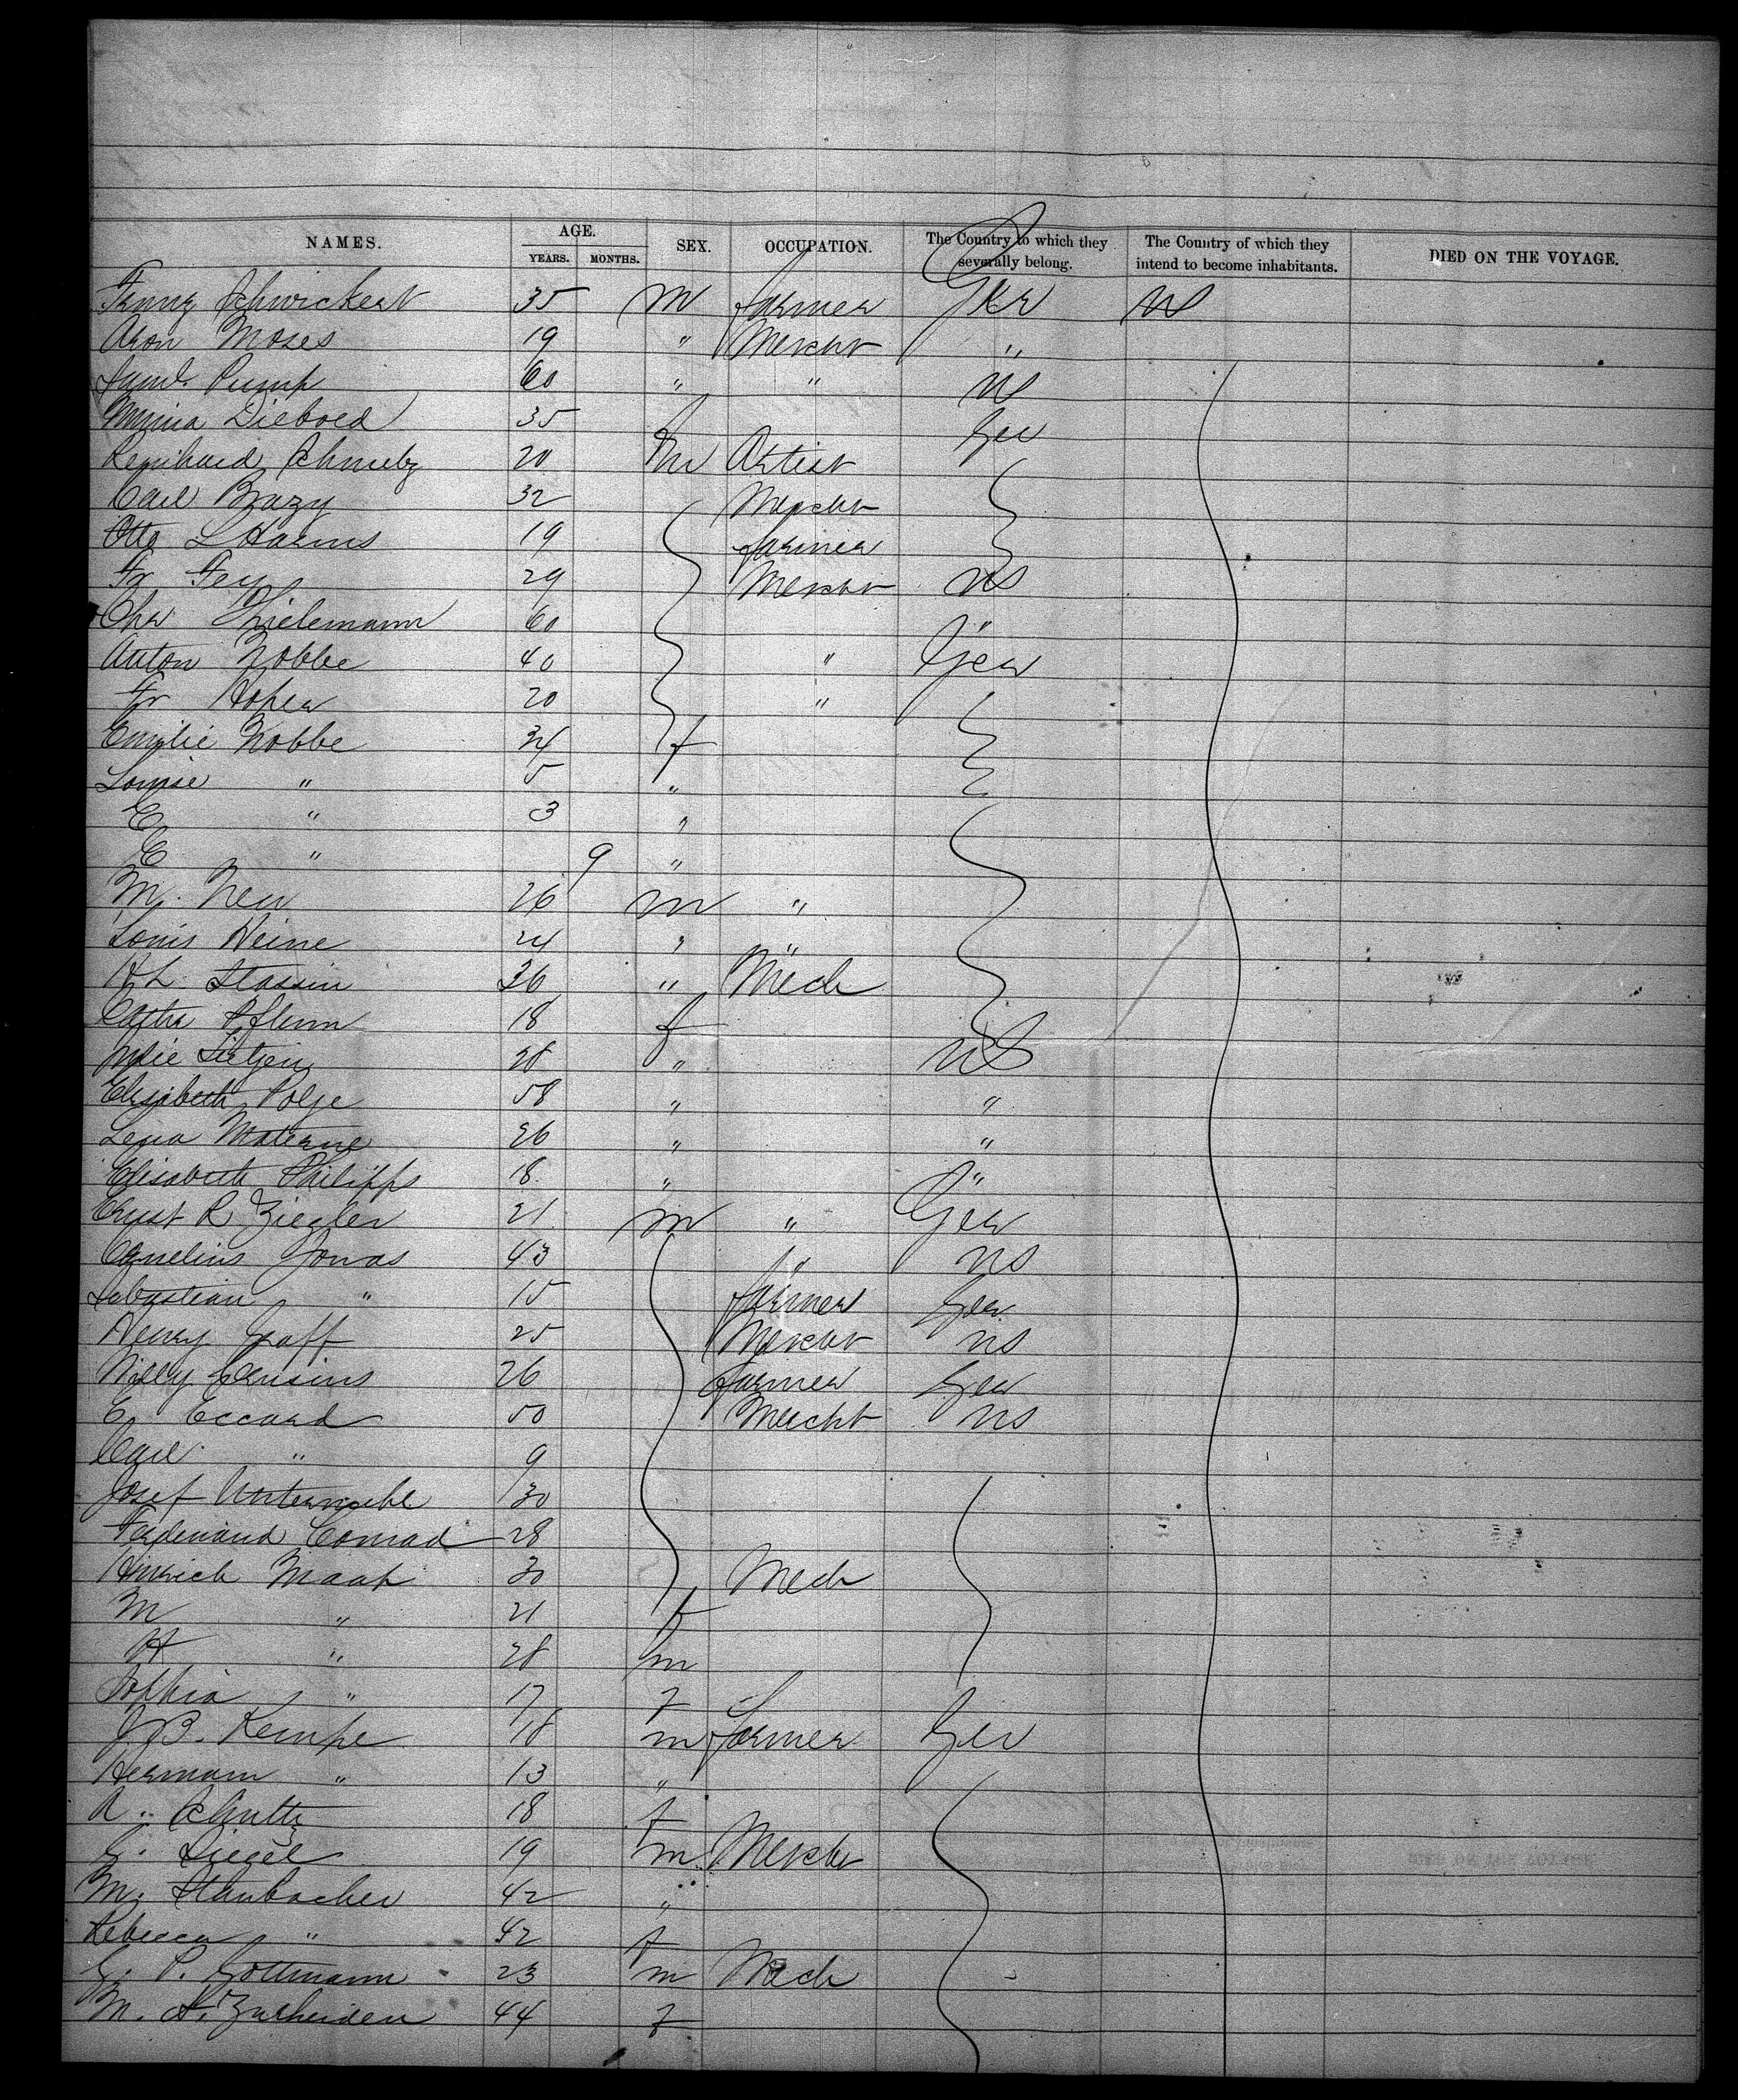 NAMES. AGE. SEX. OCCUPATION. The Country to which they severally belong. The Country of which they intend to become inhabitants. DIED ON THE VOYAGE.
YEARS. MONTHS.
Franz Schwickert 35 m farmer Ger US
Aron Moses 19 " Mercht "
Saml. Pump 60 " " US
Minna Diebold 35 Ger
Reinhard 20 m Artist
Carl Brazy 32 Mercht
Otto L Harms 19 farmer
Fr Fey 29 Mercht US
Chr Thielemann 60 "
Anton Nobbe 40 " Ger
Fr Hoper 20 "
Emilie Nobbe 34 f
Louise " 5 "
E " 3 "
E " 9 "
M. New 26 m "
Louis Heine 24 " "
H L. Stassin 36 " Mech
Cathr Pflum 18 f
Tietjen 28 " US
Elisabeth Polje 58 " "
Lena Materne 26 " "
Elisabeth Philipps 18 " "
Ernst R Ziegler 21 m " Ger
Cornelius Jonas 43 " US
Sebastian " 15 farmer Ger
Henry Graff 25 Mercht US
Willy Crusius 26 farmer Ger
E. Eccard 50 Mercht US
Carl " 9
Josef 30
Ferdinand Conrad 28
Hinrich Maak 30 Mech
M " 21 f
H " 28 m
Sophia " 17 f
J. B. Kempe 18 m farmer Ger
Hermann " 13 "
A. Schultz 18 f
G. Siegel 19 m Mercht
M. Staubacher 42 " "
Rebecca " 42 f
G. P. Gottmann 23 m Mech
M. A. Zurheiden 44 f